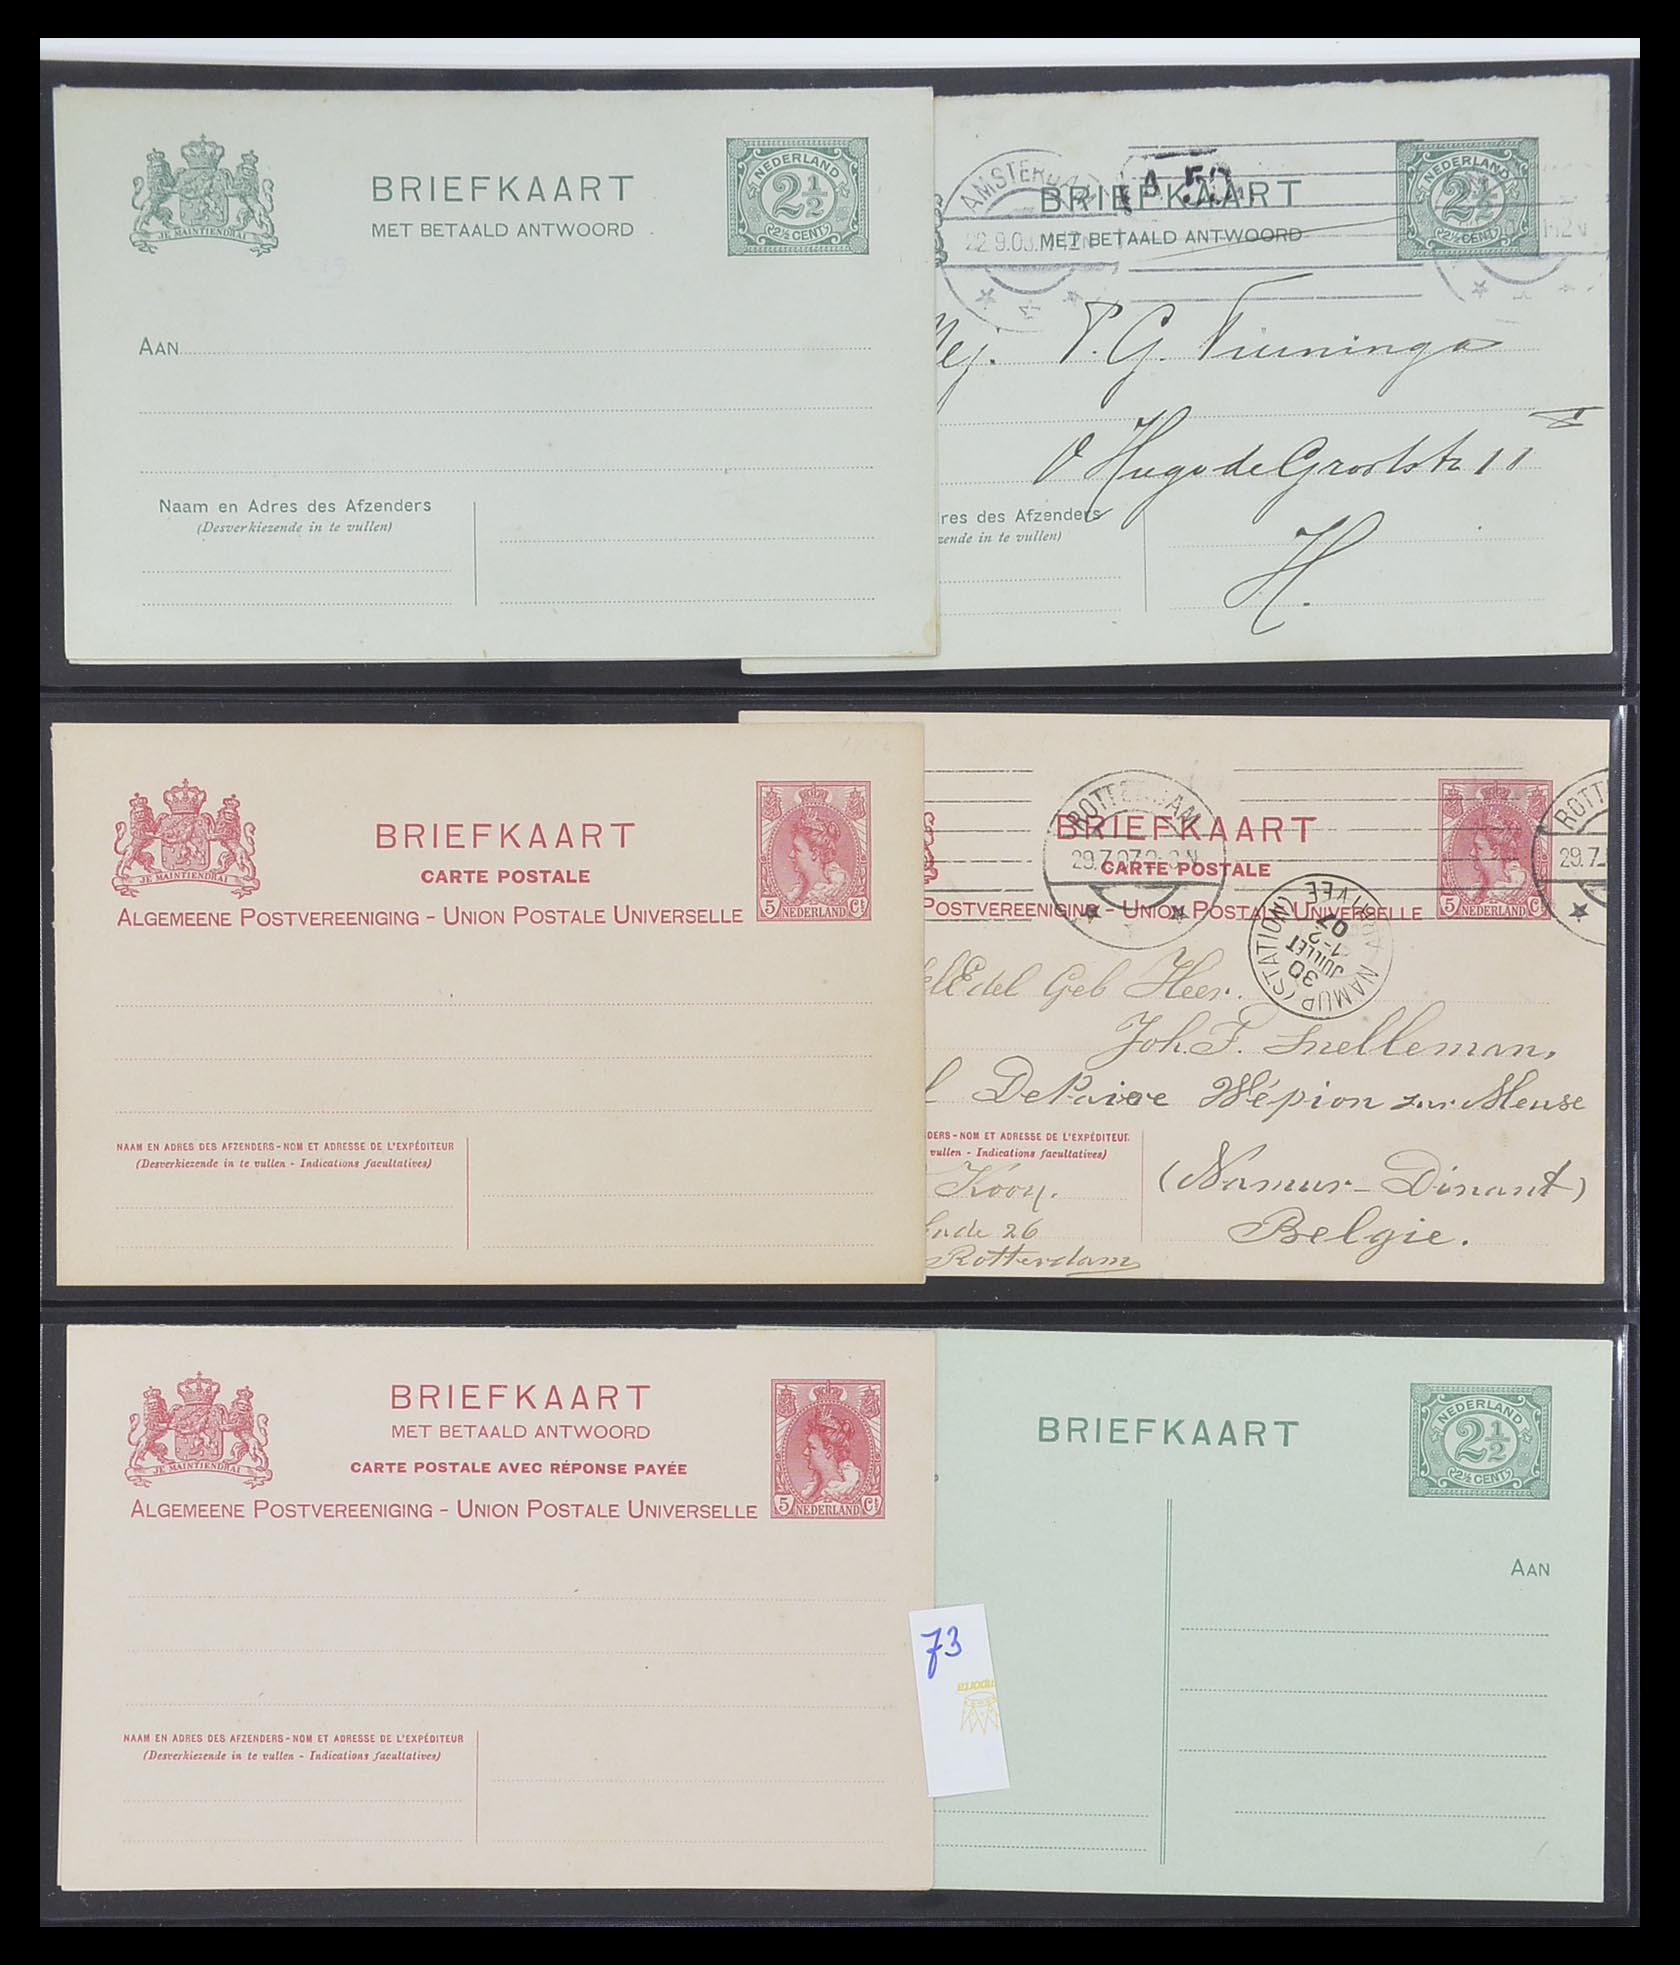 BRIEFKAART
MET BETAALD ANTWOORD
NEDERLAND
2½
2½ CENT
JE MAINTIENDRAI
AAN
Naam en Adres des Afzenders
(Desverkiezende in te vullen)
AMSTERDA
A 50
BRIEFKAART
MET BETAALD ANTWOORD
NEDERLAND
2½
2½ CENT
22.9.03
ej. P. G. Tieninga
Hugo de Grootstr 11
res des Afzenders
zende in te vullen)
H.
BRIEFKAART
CARTE POSTALE
ALGEMEENE POSTVEREENIGING - UNION POSTALE UNIVERSELLE
JE MAINTIENDRAI
5 NEDERLAND Ct
NAAM EN ADRES DES AFZENDERS - NOM ET ADRESSE DE L'EXPÉDITEUR
(Desverkiezende in te vullen - Indications facultatives)
ROTTERDAM
29.7.07
BRIEFKAART
CARTE POSTALE
POSTVEREENIGING - UNION POSTALE UNIVERSELLE
5 NEDERLAND Ct
ROTT
29.7
NAMUR (STATION)
30 JUILLET
1-2
07
ARRIVEE
Edel Geb Heer.
Joh. F. Snelleman,
De Paire Wépion sur Meuse
DERS - NOM ET ADRESSE DE L'EXPÉDITEUR
vullen - Indications facultatives)
(Namur - Dinant)
Kooy.
nde 26
Belgie.
Rotterdam
BRIEFKAART
MET BETAALD ANTWOORD
CARTE POSTALE AVEC RÉPONSE PAYÉE
ALGEMEENE POSTVEREENIGING - UNION POSTALE UNIVERSELLE
JE MAINTIENDRAI
5 NEDERLAND Ct
NAAM EN ADRES DES AFZENDERS - NOM ET ADRESSE DE L'EXPÉDITEUR
(Desverkiezende in te vullen - Indications facultatives)
BRIEFKAART
NEDERLAND
2½
2½ CENT
AAN
73
mporta